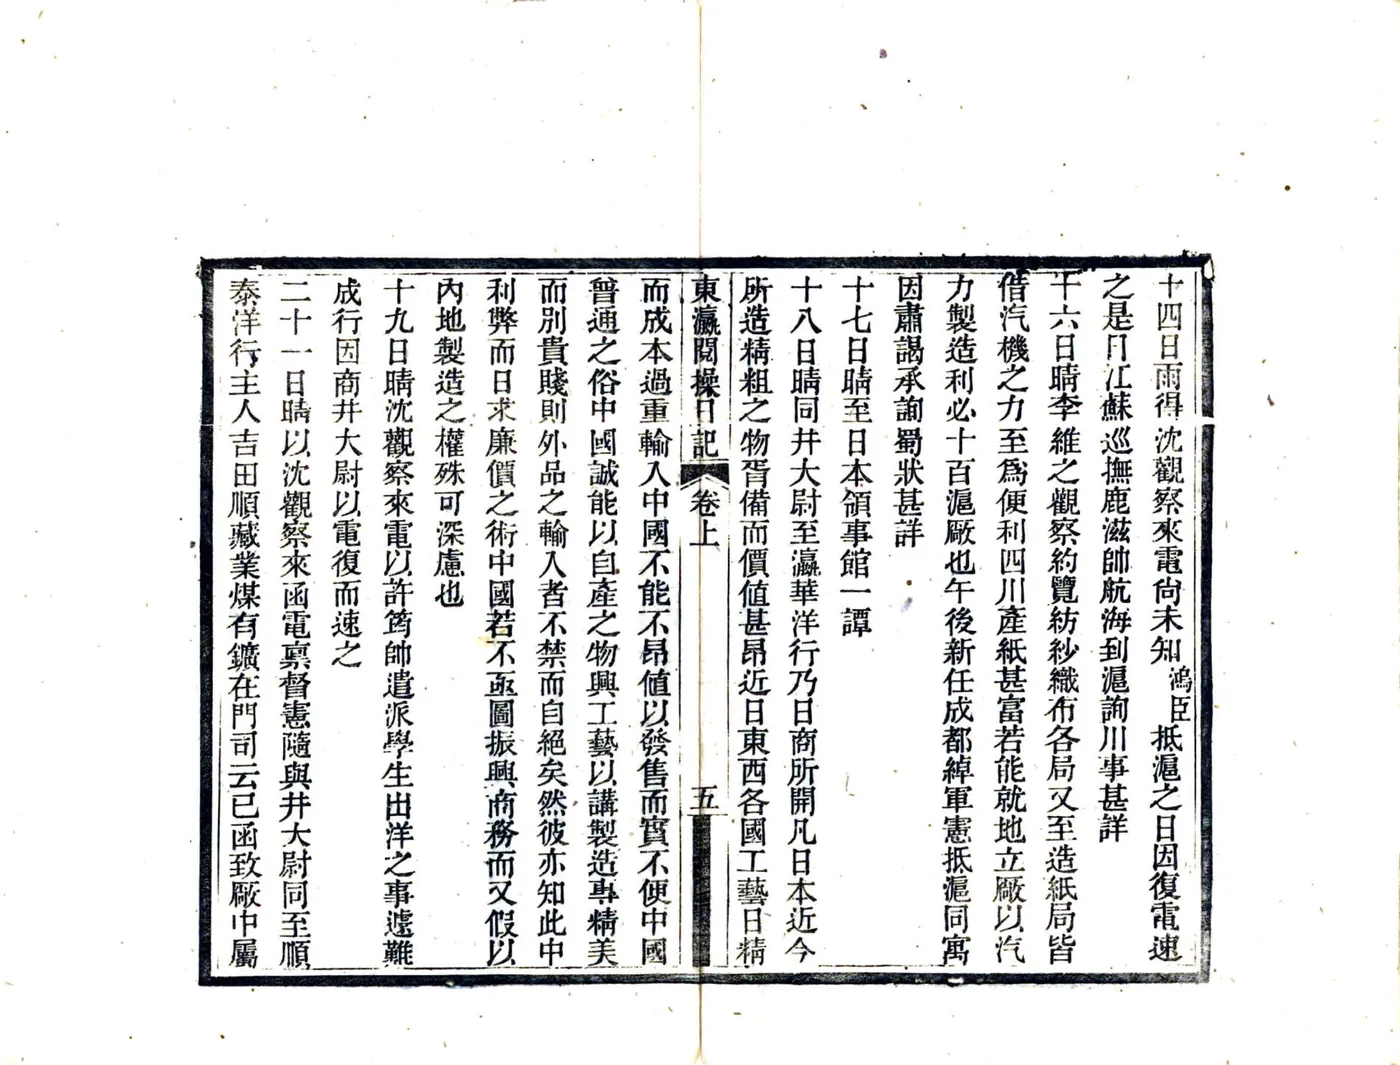 十四日雨得沈觀察來電尙未知鴻臣抵滬之日因復電速
之是日江蘇巡撫鹿滋帥航海到滬詢川事甚詳
十六日晴李維之觀察約覽紡紗織布各局又至造紙局皆
借汽機之力至爲便利四川產紙甚富若能就地立厰以汽
力製造利必十百滬厰也午後新任成都綽軍憲抵滬同寓
因肅謁承詢蜀狀甚詳
十七日晴至日本領事館一譚
十八日晴同井大尉至瀛華洋行乃日商所開凡日本近今
所造精粗之物胥備而價値甚昂近日東西各國工藝日精
東瀛閱操日記 卷上 五
而成本過重輸入中國不能不昂値以發售而實不便中國
普通之俗中國誠能以自產之物興工藝以講製造專精美
而別貴賤則外品之輸入者不禁而自絕矣然彼亦知此中
利弊而日求廉價之術中國若不亟圖振興商務而又假以
內地製造之權殊可深慮也
十九日晴沈觀察來電以許筠帥遣派學生出洋之事遽難
成行因商井大尉以電復而速之
二十一日晴以沈觀察來函電禀督憲隨與井大尉同至順
泰洋行主人吉田順藏業煤有鑛在門司云已函致厰中屬